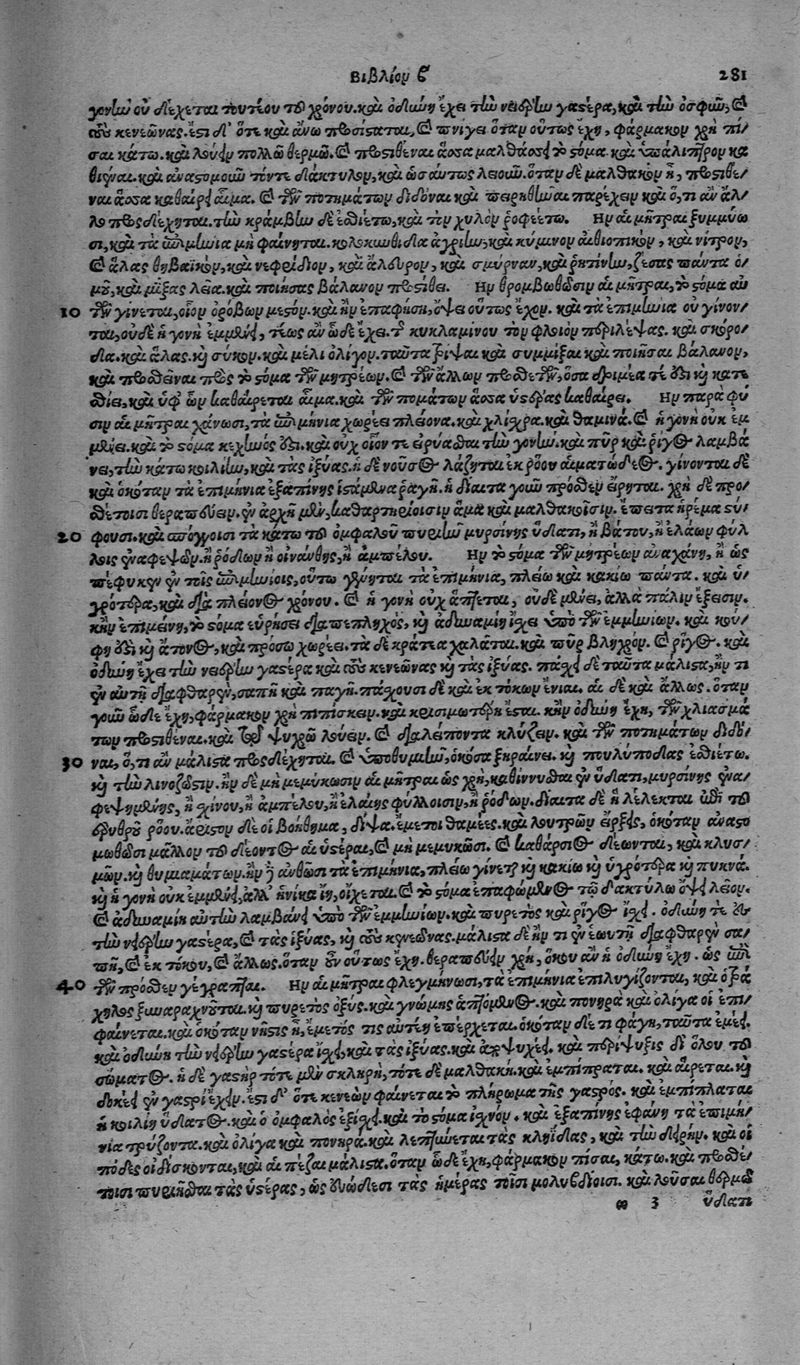 Βιβλίον ς 281
γονὴν οὐ δέχεται τουτέου τοῦ χρόνου. καὶ ὀδύνη ἔχει τὴν νειαίρην γαστέρα, καὶ τὴν ὀσφὺν, καὶ
τοὺς κενεῶνας. ἔστι δ' ὅτε καὶ ἄνω προσίσταται, καὶ πνίγει ὅταν οὕτως ἔχῃ, φάρμακον χρὴ πί
σαι κάτω. καὶ λούειν πολλῷ θερμῷ. καὶ προστιθέναι ἅσσα μαλθάσσει τὸ στόμα. καὶ
καὶ ἀναστομοῦν τὸ δακτύλῳ, καὶ ὡσαύτως λειοῦν. ὅταν δὲ μαλθακὸν ᾖ, προστιθέ
ναι ἅσσα καθαίρει αἷμα. καὶ τῶν ποτημάτων διδόναι καὶ πειρηθῆναι παρέχειν καὶ ὅ,τι ἂν μάλ
λον προσδέχηται. τὴν κράμβην δὲ ἐσθιέτω, καὶ τὸν χυλὸν ῥοφείτω. Ην αἱ μῆτραι ξυμμύω
σι, καὶ τὰ ἐπιμήνια μὴ φαίνηται. κολοκυνθίδα ἀγρίην, καὶ κύμινον αἰθιοπικὸν, καὶ νίτρον,
καὶ ἅλας θηβαϊκὸν, καὶ καὶ ἄλευρον, καὶ σμύρναν, καὶ ῥητίνην, ζέσας πάντα ὁ
μοῦ, καὶ μίξας λεῖα. καὶ ποιήσας βάλανον προστίθει. Ην θρομβωθῶσιν αἱ μῆτραι, τὸ στόμα αὐ
10 τῶν γίνεται, οἷον ὀρόβων μεστόν. καὶ ἢν ἐπαφήσῃ, ὄψει οὕτως ἔχον. καὶ τὰ ἐπιμήνια οὐ γίνον
ται, οὐδὲ ἡ γονὴ ἐμμένει, τέως ἂν ὧδε ἔχει. τοῦ κυκλαμίνου τὸν φλοιὸν περιλέψας. καὶ σκόρο
δα. καὶ ἅλας. καὶ σῦκον. καὶ μέλι ὀλίγον. ταῦτα τρίψαι καὶ συμμίξαι καὶ ποιῆσαι βάλανον,
καὶ προσθεῖναι πρὸς τὸ στόμα τῶν μητρέων. καὶ τῶν ἄλλων προσθετῶν, ὅσα δριμέα τέ ἐστι καὶ κατε
σθίει, καὶ ὑφ' ὧν καθαίρεται αἷμα. καὶ τῶν πομάτων ἅσσα ὑστέρας καθαίρει. Ην παρὰ φύ
σιν αἱ μῆτραι χάνωσι, τὰ ἐπιμήνια χωρέει πλείονα. καὶ γλίσχρα. καὶ θαμινά. καὶ ἡ γονὴ οὐκ ἐμ
μένει. καὶ τὸ στόμα κεχηνός ἐστι. καὶ οὐχ οἷόν τε εἰρύσθαι τὴν γονήν. καὶ πῦρ καὶ ῥῖγος λαμβά
νει, τὴν κάτω κοιλίην, καὶ τὰς ἰξύας. ἡ δὲ νοῦσος λάζηται ἐκ ῥόου αἱματώδεος. γίνονται δὲ
καὶ ὁκόταν τὰ ἐπιμήνια ἐξαπίνης ἱστάμενα ῥαγῇ. ἡ δίαιτα γοῦν πρόσθεν εἴρηται. χρὴ δὲ προσ
θέτοισι θεραπεύειν. ἐν ἀρχῇ μὲν, καθαρτηρίοισιν ἅμα καὶ μαλθακοῖσιν. ἔπειτα ἠρέμα στύ
20 φουσι. καὶ σπόγγοισι τὰ κάτω τοῦ ὀμφαλοῦ πυριῆν μυρσίνης ὕδατι, ἢ βάτου, ἢ ἐλάων φύλ
λοις ἐναφεψῶν. ἢ ῥόδων ἢ οἰνάνθης, ἢ ἀμπέλου. Ην τὸ στόμα τῶν μητρέων ἀναχάνῃ, ἢ ὡς
πέφυκεν ἐν τοῖς ἐπιμηνίοις, οὕτω γένηται τὰ ἐπιμήνια, πλείω καὶ κακίω πάντα. καὶ ὑ
γρότερα, καὶ διὰ πλείονος χρόνου. καὶ ἡ γονὴ οὐχ ἅπτεται, οὐδὲ μένει, ἀλλὰ πάλιν ἔξεισιν.
κἢν ἐπιμείνῃ, τὸ στόμα εὑρήσει διαπεπληχὸς, καὶ ἀδυναμίη ἴσχει ὑπὸ τῶν ἐμμηνίων. καὶ κού
φη ἐστὶ καὶ ἄτονος, καὶ πρόσω χωρέει. τὰ δὲ κράτεα χαλᾶται. καὶ πῦρ βληχρόν. καὶ ῥῖγος. καὶ
ὀδύνη ἔχει τὴν νειαίρην γαστέρα καὶ τοὺς κενεῶνας καὶ τὰς ἰξύας. πάσχει δὲ ταῦτα μάλιστα, ἤν τι
ἐν αὐτῇ διαφθαρὲν, σαπῇ καὶ παγῇ. πάσχουσι δὲ καὶ ἐκ τόκων ἔνιαι. αἱ δὲ καὶ ἄλλως. ὅταν
γοῦν ὧδε ἔχῃ, φάρμακον χρὴ πιπίσκειν. καὶ κρισιμωτέρη ἔσται. κἢν ὀδύνη ἔχῃ, τῶν χλιασμά
των προστιθέναι. καὶ ψυχρῷ λούειν. καὶ διαλείποντα κλύζειν. καὶ τῶν ποτημάτων διδό
30 ναι, ὅ,τι ἂν μάλιστα προσδέχηται. καὶ ὑποθυμιῆν, ὁκόσα ξηραίνει. καὶ πουλύποδας ἐσθιέτω.
καὶ τὴν λινόζωστιν. ἢν δὲ μὴ μεμύκωσιν αἱ μῆτραι ὡς χρὴ, καθίννυσθαι ἐν ὕδατι, μυρσίνης ἐνα
φεψημένης, ἢ σχίνου, ἢ ἀμπέλου, ἢ ἐλαίης φύλλοισιν, ἢ ῥόδων. δίαιτα δὲ ἣ λέλεκται ἐπὶ τοῦ
ἐρυθροῦ ῥόου. ἄριστον δέ οἱ βοήθημα, δίψα. ἔμετοι θαμέες. καὶ λουτρῶν εἴρξις, ὁκόταν ἀναστο
μωθῶσι μᾶλλον τοῦ δέοντος αἱ ὑστέραι, καὶ μὴ μεμυκῶσι. καὶ καθάρσιος δέωνται, καὶ κλυσ
μῶν. καὶ θυμιαμάτων. ἢν δὲ ἀνθῶσι τὰ ἐπιμήνια, πλείω γίνεται καὶ κακίω καὶ ὑγρότερα καὶ πυκνά.
καὶ ἡ γονὴ οὐκ ἐμμένει, ἀλλ' ἡνίκα ἴῃ, οἴχεται. καὶ τὸ στόμα ἐπαφώμενος τῷ δακτύλῳ ὄψει λεῖον.
καὶ ἀδυναμίη αὐτὴν λαμβάνει ὑπὸ τῶν ἐμμηνίων. καὶ πυρετὸς καὶ ῥῖγος ἴσχει. ὀδύνη τε ἐς
τὴν νείαιρην γαστέρα, καὶ τὰς ἰξύας, καὶ τοὺς κενεῶνας. μάλιστα δὲ ἤν τι ἐν ἑωυτῇ διαφθαρὲν σα
πῇ, καὶ ἐκ τόκου, καὶ ἄλλως. ὅταν οὖν οὕτως ἔχῃ. θεραπεύειν χρὴ, ὅκου ἂν ἡ ὀδύνη ἔχῃ. ὡς ἐπὶ
40 τῶν πρόσθεν γέγραπται. Ην αἱ μῆτραι φλεγμήνωσι, τὰ ἐπιμήνια ἐπιλυγίζονται, καὶ
ξυναραχνοῦται. καὶ πυρετὸς ὀξύς. καὶ γνώμης ἁπτόμενος. καὶ πονηρὰ καὶ ὀλίγα οἱ ἐπι
φαίνεται. καὶ ὁκόταν νῆστις ᾖ, ἔμετός τις αὐτὴν ἐπέρχεται. ὁκόταν δέ τι φάγῃ, ταῦτα ἐμέει.
καὶ ὀδύνη τὴν νείαιρην γαστέρα ἴσχει, καὶ τὰς ἰξύας. καὶ ἀποψύχει. καὶ περίψυξις δι' ὅλου τοῦ
σώματος. ἡ δὲ γαστὴρ τότε μὲν σκληρὴ, τότε δὲ μαλθακή. καὶ ἐμπίπραται. καὶ αἴρεται. καὶ
δοκέει ἐν γαστρὶ ἔχειν. ἔστι δ' ὅτε κενεὸν φαίνεται τὸ πλήρωμα τῆς γαστρός. καὶ ἐμπίπλαται
ἡ κοιλίη ὕδατος. καὶ ὁ ὀμφαλὸς ἐξίσχει. καὶ τὸ στόμα ἰσχνόν. καὶ ἐξαπίνης ἐφάνη τὰ ἐπιμή
νια τρύζοντα. καὶ ὀλίγα καὶ πονηρά. καὶ λεπτύνεται τὰς κληῖδας, καὶ τὴν δειρήν. καὶ οἱ
πόδες οἰδίσκονται, καὶ αἱ πέζαι μάλιστα. ὅταν ὧδε ἔχῃ, φάρμακον πῖσαι, κάτω. καὶ προσθέ
τοισι πυριῆσθαι τὰς ὑστέρας, ὡς εὐώδεσι τὰς ἡμέρας τοῖσι μολυβδίοισι. καὶ λοῦσαι θερμῷ
3 ὕδατι